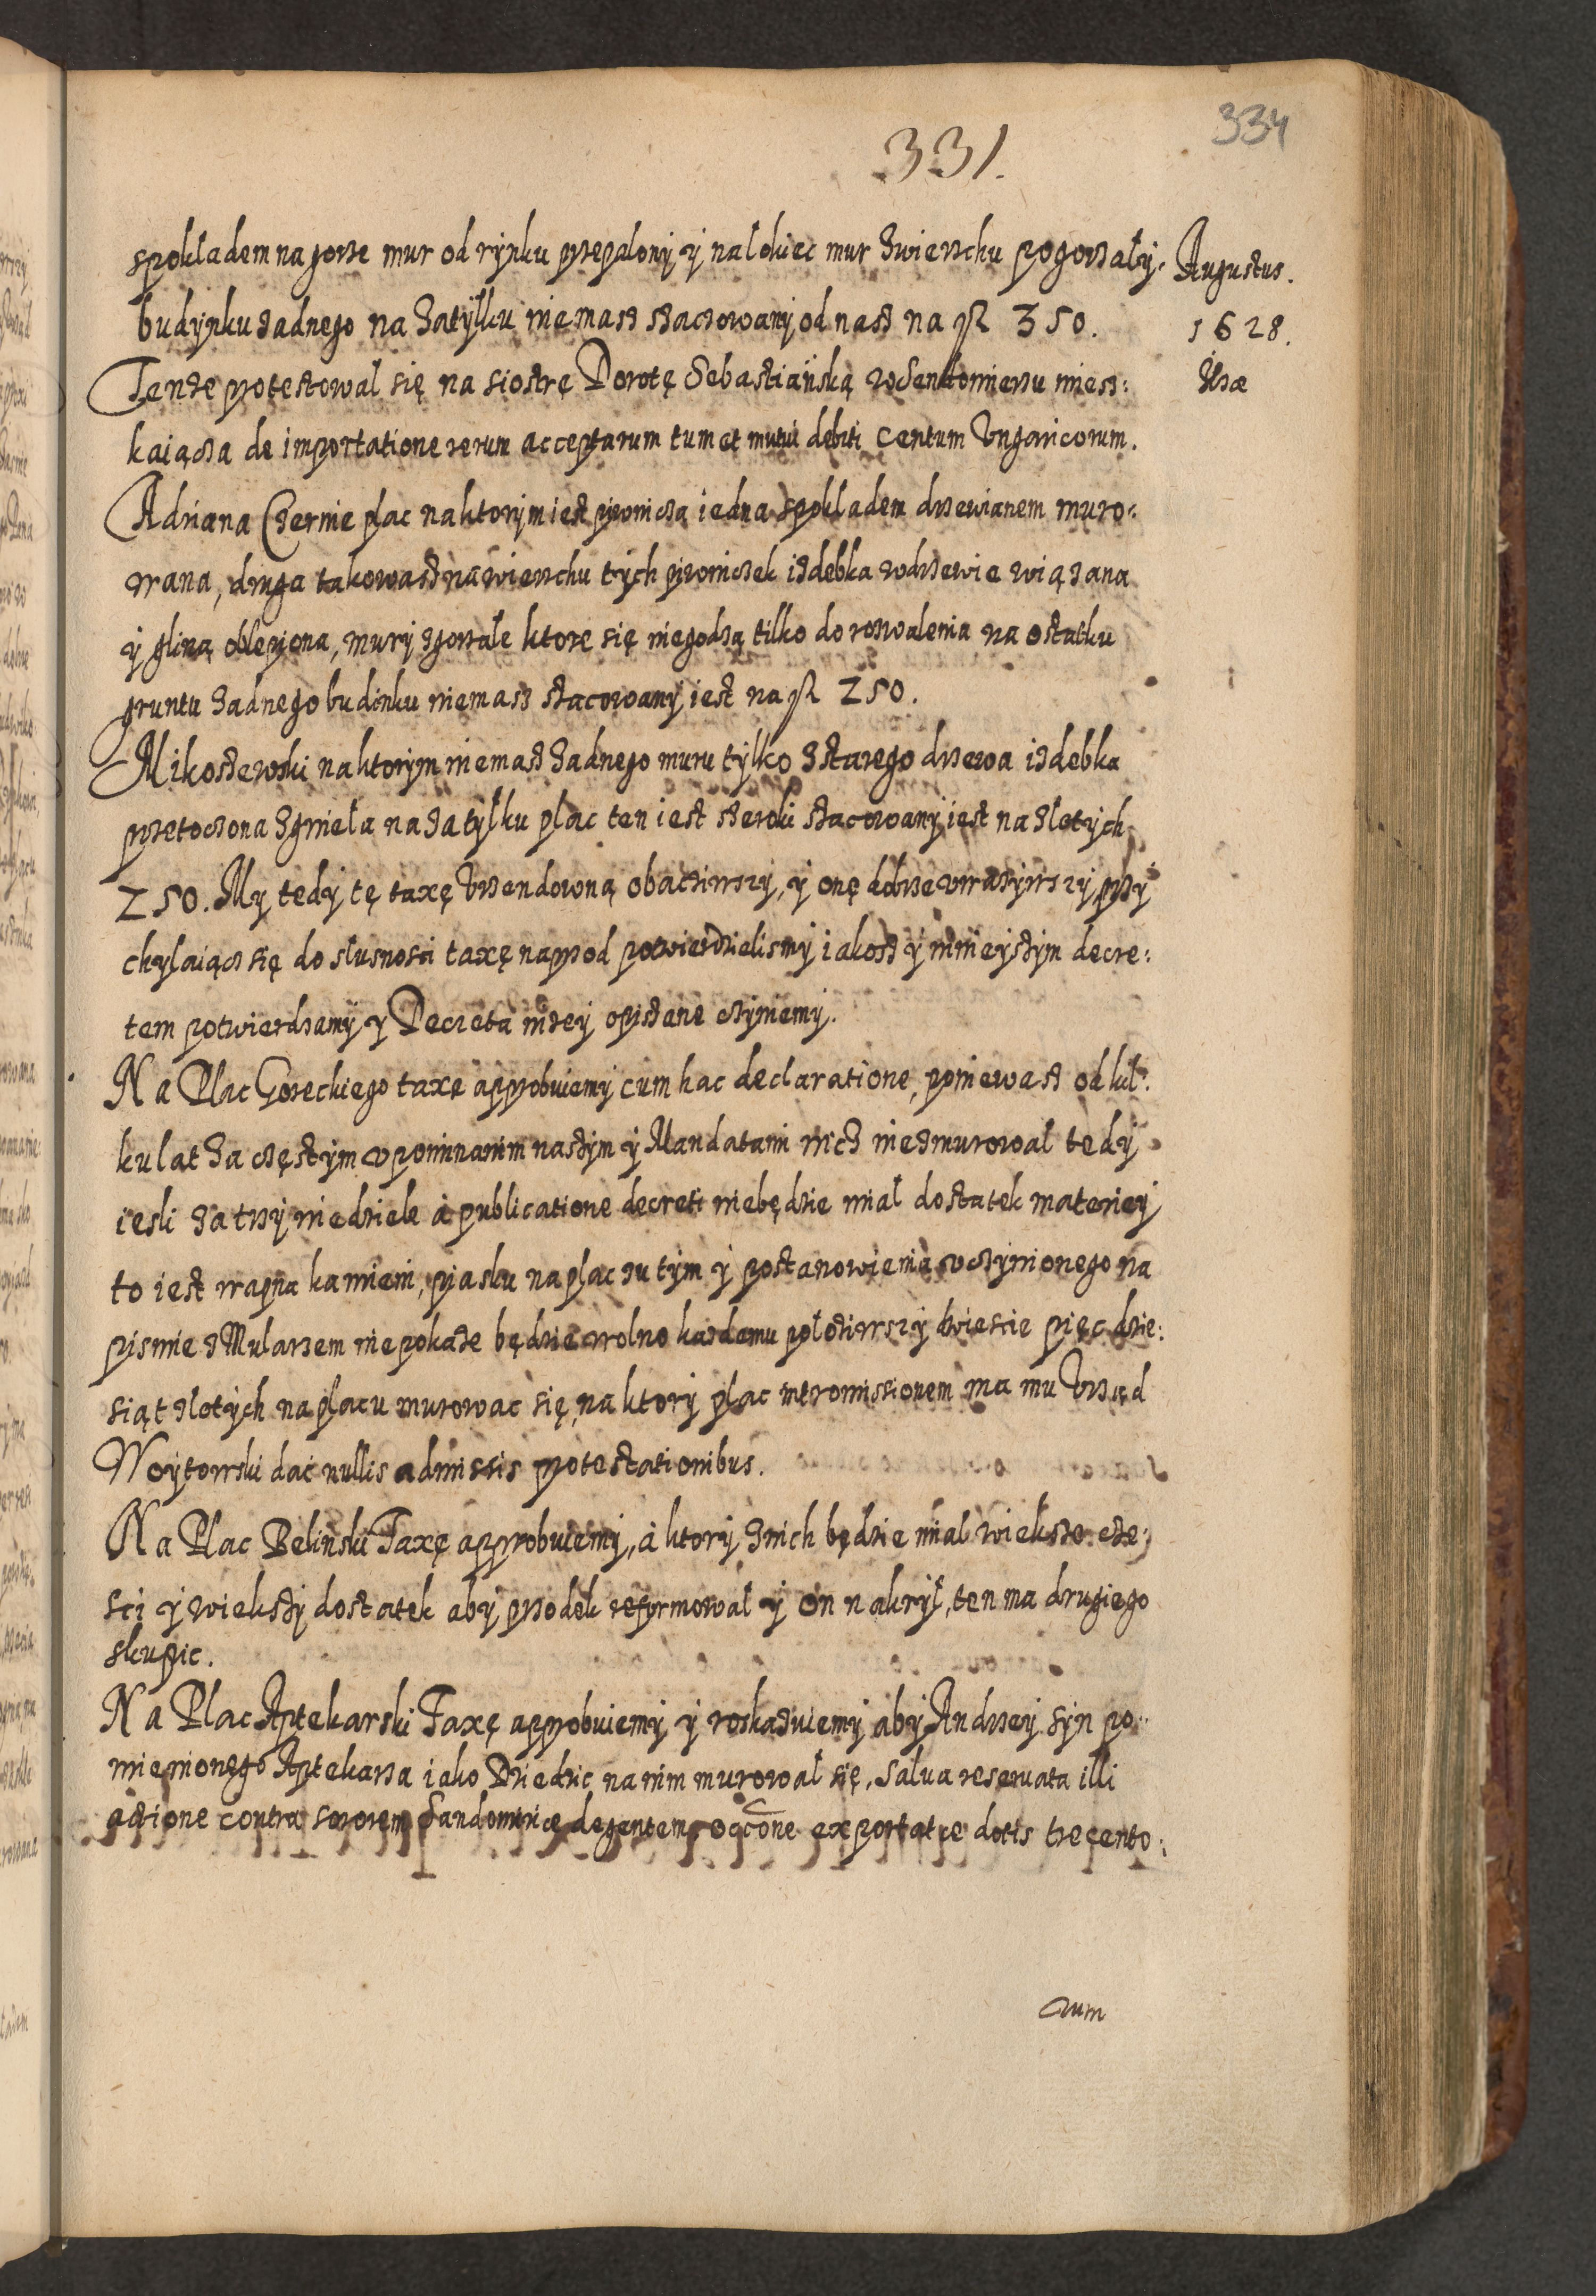 334
331.
spokladem na gorze mur od rynku przepalony y na lokiec mur zwierzchu pogorzały.
Augustus.
budynku zadnego na zatyłku niemasz szaczowany od nasz na fl 350.
1628.
Tenze protestowal się na siostrę Dorotę Sebastiańską w Sendomierzu miesz:
kaiącza de importatione rerum acceptarum tum et mutui debiti Centum Ungaricorum.
Adriana Czernie plac na ktorym iest piwnicza iedna spokladem drzewianem muro:
wana, druga takowasz na wierzchu tych piwniczek izdebka w drzewie wiązana
y gliną oblepiona, mury zgorzałe ktore się niegodzą tilko do rozwalenia na ostatku
gruntu zadnego budinku niemasz szacowany iest na fl 250.
Mikoszewski na ktorym niemasz zadnego muru tylko z starego drzewa izdebka
przetoczona zgniela na zatyłku plac ten iest szeroki szacowany iest na zlotych
250. My tedy tę taxę Urzendowną obacziwszy, y onę dobrze uważywszy przy
chylaiącz się do slusnosci taxę naprzod potwierdzielismy iakosz y ninieyszym decre:
tem potwierdzamy y Decreta nizey opisane czyniemy.
Na Plac Goreckiego taxę approbuiemy cum hac declaratione, poniewasz od kil:
ku lat za częstym upominanim naszym y Mandatami nicz niezmurowal tedy
iesli za trzy niedziele à publicatione decreti niebędzie mial dostatek materiey
to iest wapna kamieni, piasku na placzu tym y postanowienia uczynionego na
pismie z Mularzem niepokaze będzie wolno kazdemu poloziwszy dwiescie pięcdzie:
siąt zlotych na placu murowac się, na ktory plac intromissionem ma mu Urząd
Woytowski dać nullis admissis protestationibus.
Na Plac Belinski Taxę approbuiemy, à ktory znich będzie mial wieksze cze:
sci y wiekszy dostatek aby przodek reformowal y on nakrył, ten ma drugiego
skupic.
Na Plac Aptekarski Taxę approbuiemy y roskazuiemy aby Andrzey syn po:
mienionego Aptekarza iako Dziedzic na nim murowal się, Salua reseruata illi
actione contra sororem Sandomiriae degentem occõne exportatae dotis trecento:
rum